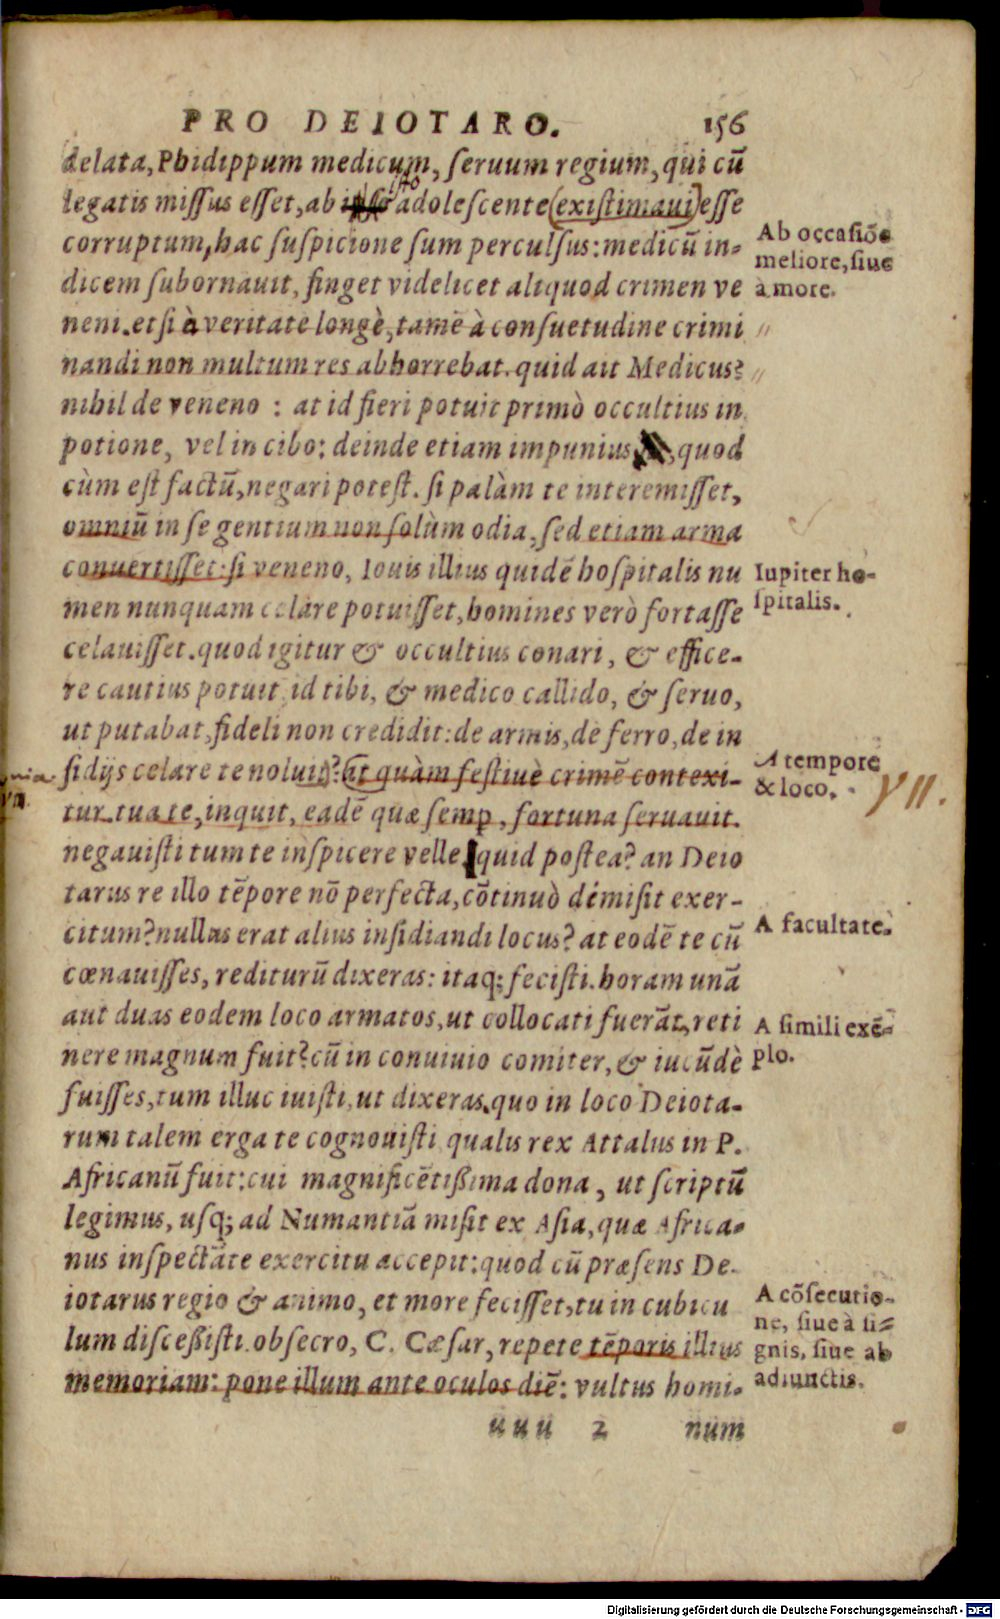 PRO DEIOTARO. 156
delata, Phidippum medicum, seruum regium, qui cū
legatis missus esset, ab isto adolescente (existimaui) esse
corruptum, hac suspicione sum perculsus: medicū in-
dicem subornauit, finget videlicet aliquod crimen ve
neni. etsi à veritate longè, tamē à consuetudine crimi
nandi non multum res abhorrebat. quid ait Medicus?
nihil de veneno : at id fieri potuit primò occultius in
potione, vel in cibo: deinde etiam impunius, quod
cùm est factū, negari potest. si palàm te interemisset,
omniū in se gentium non solùm odia, sed etiam arma
conuertisset: si veneno, Iouis illius quidē hospitalis nu
men nunquam celare potuisset, homines verò fortasse
celauisset. quod igitur & occultius conari, & effice-
re cautius potuit, id tibi, & medico callido, & seruo,
ut putabat, fideli non credidit: de armis, de ferro, de in
sidijs celare te noluit? At quàm festiuè crimē contexi-
tur. tua te, inquit, eadē quæ semp, fortuna seruauit.
negauisti tum te inspicere velle. quid postea? an Deio
tarus re illo tēpore nō perfecta, cōtinuò dimisit exer-
citum? nullus erat alius insidiandi locus? at eodē te cū
cœnauisses, rediturū dixeras: itaq; fecisti. horam unā
aut duas eodem loco armatos, ut collocati fuerāt, reti
nere magnum fuit? cū in conuiuio comiter, & iucūdè
fuisses, tum illuc iuisti, ut dixeras. quo in loco Deiota-
rum talem erga te cognouisti qualis rex Attalus in P.
Africanū fuit: cui magnificētißima dona, ut scriptū
legimus, usq; ad Numantiā misit ex Asia, quæ Africa-
nus inspectāte exercitu accepit: quod cū præsens De-
iotarus regio & animo, et more fecisset, tu in cubicu
lum disceßisti. obsecro, C. Cæsar, repete tēporis illius
memoriam: pone illum ante oculos diē: vultus homi-
uuu 2 num
Ab occasiōe
meliore, siue
à more.
Iupiter ho-
spitalis.
A tempore
& loco.
VII.
A facultate.
A simili exē-
plo.
A cōsecutio-
ne, siue à si-
gnis, siue ab
adiunctis.
Digitalisierung gefördert durch die Deutsche Forschungsgemeinschaft - DFG